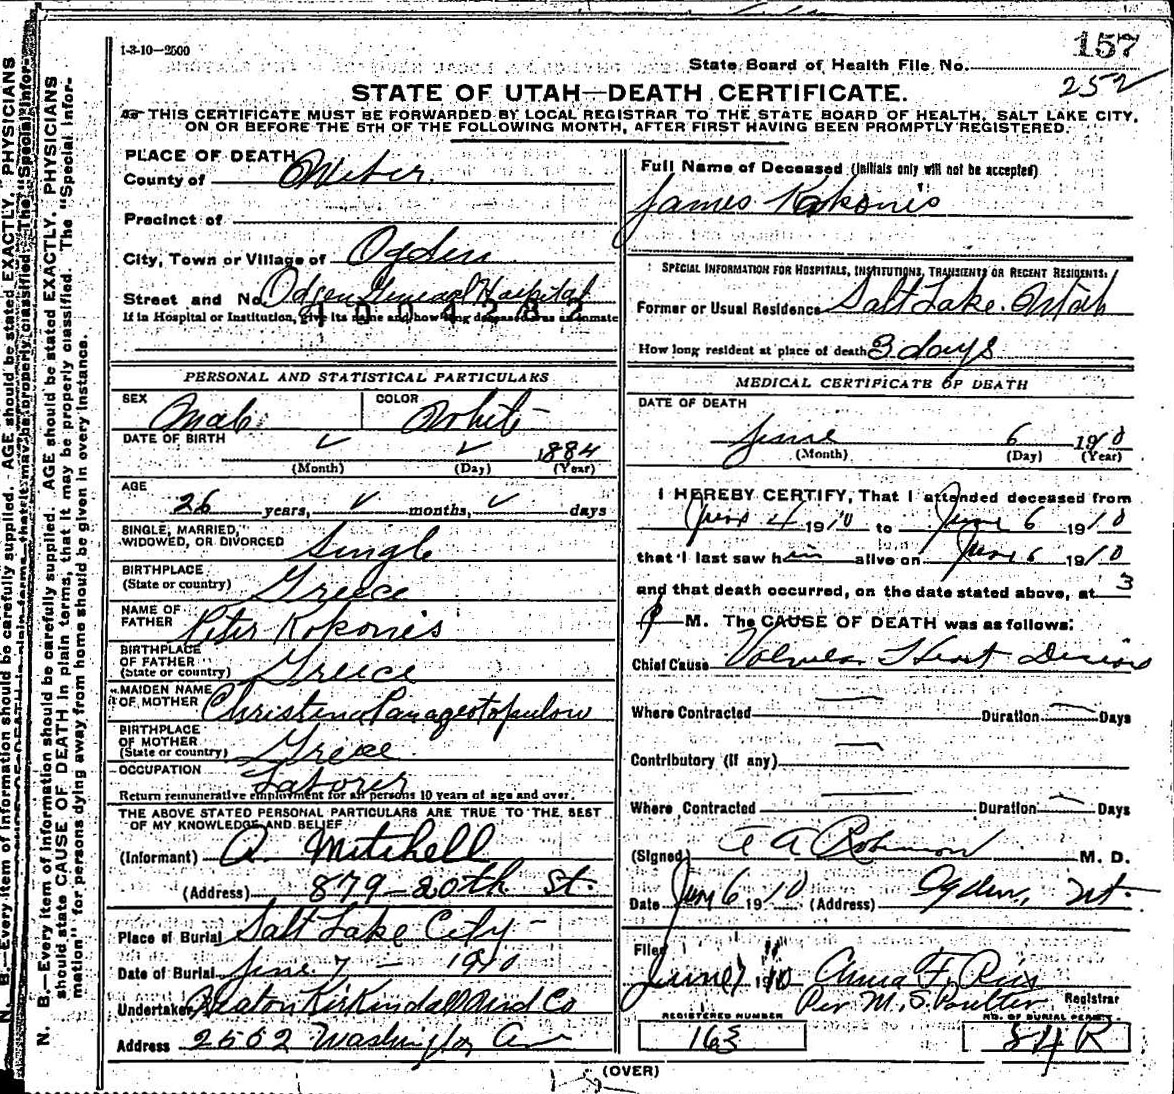 1-3-10—2500
157
State Board of Health File No.
252
STATE OF UTAH—DEATH CERTIFICATE.
THIS CERTIFICATE MUST BE FORWARDED BY LOCAL REGISTRAR TO THE STATE BOARD OF HEALTH, SALT LAKE CITY,
ON OR BEFORE THE 5TH OF THE FOLLOWING MONTH, AFTER FIRST HAVING BEEN PROMPTLY REGISTERED.
PLACE OF DEATH
County of Weber
Precinct of
City, Town or Village of Ogden
Street and No. Ogden General Hospital
If in Hospital or Institution, give its name and how long deceased was an inmate
PERSONAL AND STATISTICAL PARTICULARS
SEX Male COLOR White
DATE OF BIRTH 1884
(Month) (Day) (Year)
AGE
26 years, months, days
SINGLE, MARRIED,
WIDOWED, OR DIVORCED Single
BIRTHPLACE
(State or country) Greece
NAME OF
FATHER Peter Kokonis
BIRTHPLACE
OF FATHER
(State or country) Greece
MAIDEN NAME
OF MOTHER Christena Panageotopulow
BIRTHPLACE
OF MOTHER
(State or country) Greece
OCCUPATION Laborer
Return remunerative employment for all persons 10 years of age and over.
THE ABOVE STATED PERSONAL PARTICULARS ARE TRUE TO THE BEST
OF MY KNOWLEDGE AND BELIEF
(Informant) A. Mitchell
(Address) 879—20th St.
Place of Burial Salt Lake City
Date of Burial June 7 — 1910
Undertaker Kirkendall and Co
Address 2562 Washington Av
Full Name of Deceased (Initials only will not be accepted)
James Kokonis
SPECIAL INFORMATION FOR HOSPITALS, INSTITUTIONS, TRANSIENTS OR RECENT RESIDENTS:
Former or Usual Residence Salt Lake. Utah
How long resident at place of death 3 days
MEDICAL CERTIFICATE OF DEATH
DATE OF DEATH
June 6 1910
(Month) (Day) (Year)
I HEREBY CERTIFY, That I attended deceased from
June 4 1910 to June 6 1910
that I last saw him alive on June 6 1910
and that death occurred, on the date stated above, at 3
P M. The CAUSE OF DEATH was as follows:
Chief Cause Valvular Heart Disease
Where Contracted Duration Days
Contributory (if any)
Where Contracted Duration Days
(Signed) Robinson M. D.
Date June 6 1910 (Address) Ogden, Ut.
Filed
June 7 1910 Anna F. Rus
Per M. S. Poulter Registrar
REGISTERED NUMBER
163
NO. OF BURIAL PERMIT
84 R
(OVER)
N. B.—Every item of information should be carefully supplied. AGE should be stated EXACTLY. PHYSICIANS
should state CAUSE OF DEATH in plain terms, that it may be properly classified. The "Special Infor-
mation" for persons dying away from home should be given in every instance.